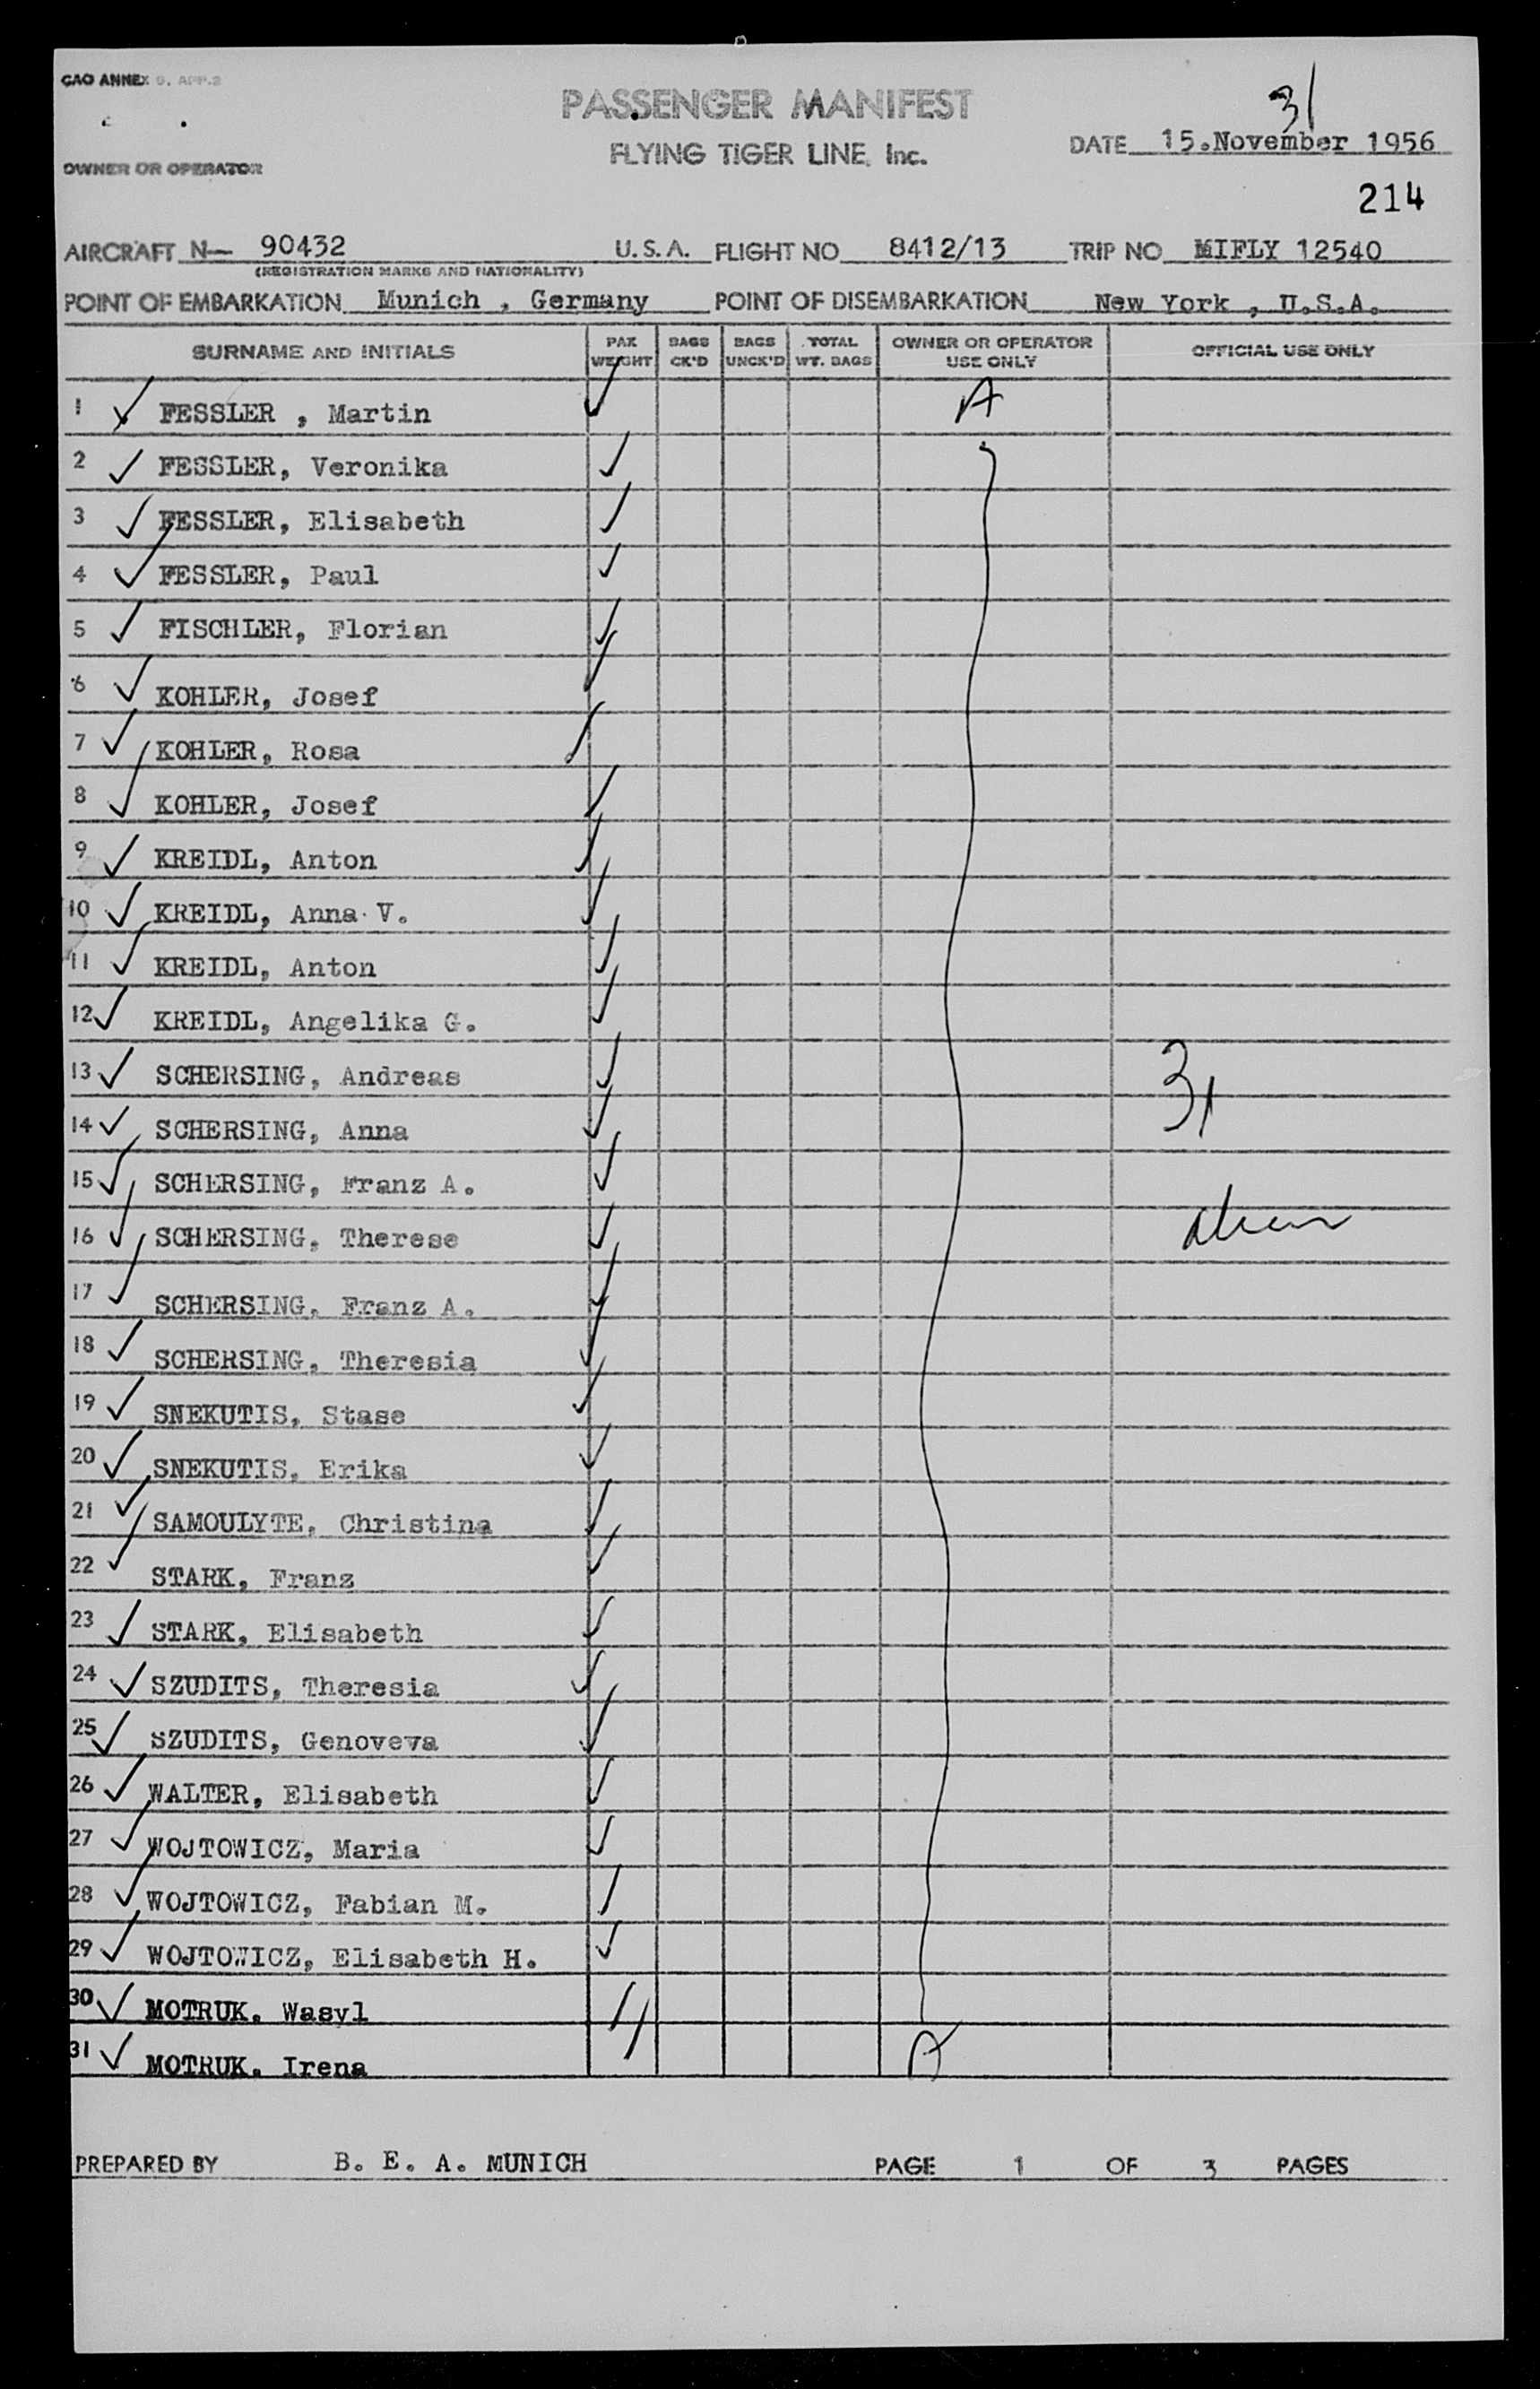 CAO ANNEX 9. APP.2
PASSENGER MANIFEST
31
FLYING TIGER LINE, Inc.
DATE 15.November 1956
OWNER OR OPERATOR
214
AIRCRAFT N— 90432 U.S.A. FLIGHT NO 8412/13 TRIP NO MIFLY 12540
(REGISTRATION MARKS AND NATIONALITY)
POINT OF EMBARKATION Munich , Germany POINT OF DISEMBARKATION New York , U.S.A.
SURNAME AND INITIALS PAX WEIGHT BAGS CK'D BAGS UNCK'D TOTAL WT. BAGS OWNER OR OPERATOR USE ONLY OFFICIAL USE ONLY
1 ✓ FESSLER , Martin ✓ A
2 ✓ FESSLER, Veronika ✓
3 ✓ FESSLER, Elisabeth ✓
4 ✓ FESSLER, Paul ✓
5 ✓ FISCHLER, Florian ✓
6 ✓ KOHLER, Josef ✓
7 ✓ KOHLER, Rosa ✓
8 ✓ KOHLER, Josef ✓
9 ✓ KREIDL, Anton ✓
10 ✓ KREIDL, Anna V. ✓
11 ✓ KREIDL, Anton ✓
12 ✓ KREIDL, Angelika G. ✓
13 ✓ SCHERSING, Andreas ✓ 31
14 ✓ SCHERSING, Anna ✓
15 ✓ SCHERSING, Franz A. ✓
16 ✓ SCHERSING, Therese ✓
17 ✓ SCHERSING, Franz A. ✓
18 ✓ SCHERSING, Theresia ✓
19 ✓ SNEKUTIS, Stase ✓
20 ✓ SNEKUTIS, Erika ✓
21 ✓ SAMOULYTE, Christina ✓
22 ✓ STARK, Franz ✓
23 ✓ STARK, Elisabeth ✓
24 ✓ SZUDITS, Theresia ✓
25 ✓ SZUDITS, Genoveva ✓
26 ✓ WALTER, Elisabeth ✓
27 ✓ WOJTOWICZ, Maria ✓
28 ✓ WOJTOWICZ, Fabian M. ✓
29 ✓ WOJTOWICZ, Elisabeth H. ✓
30 ✓ MOTRUK, Wasyl ✓
31 ✓ MOTRUK, Irena ✓ A
PREPARED BY B. E. A. MUNICH PAGE 1 OF 3 PAGES